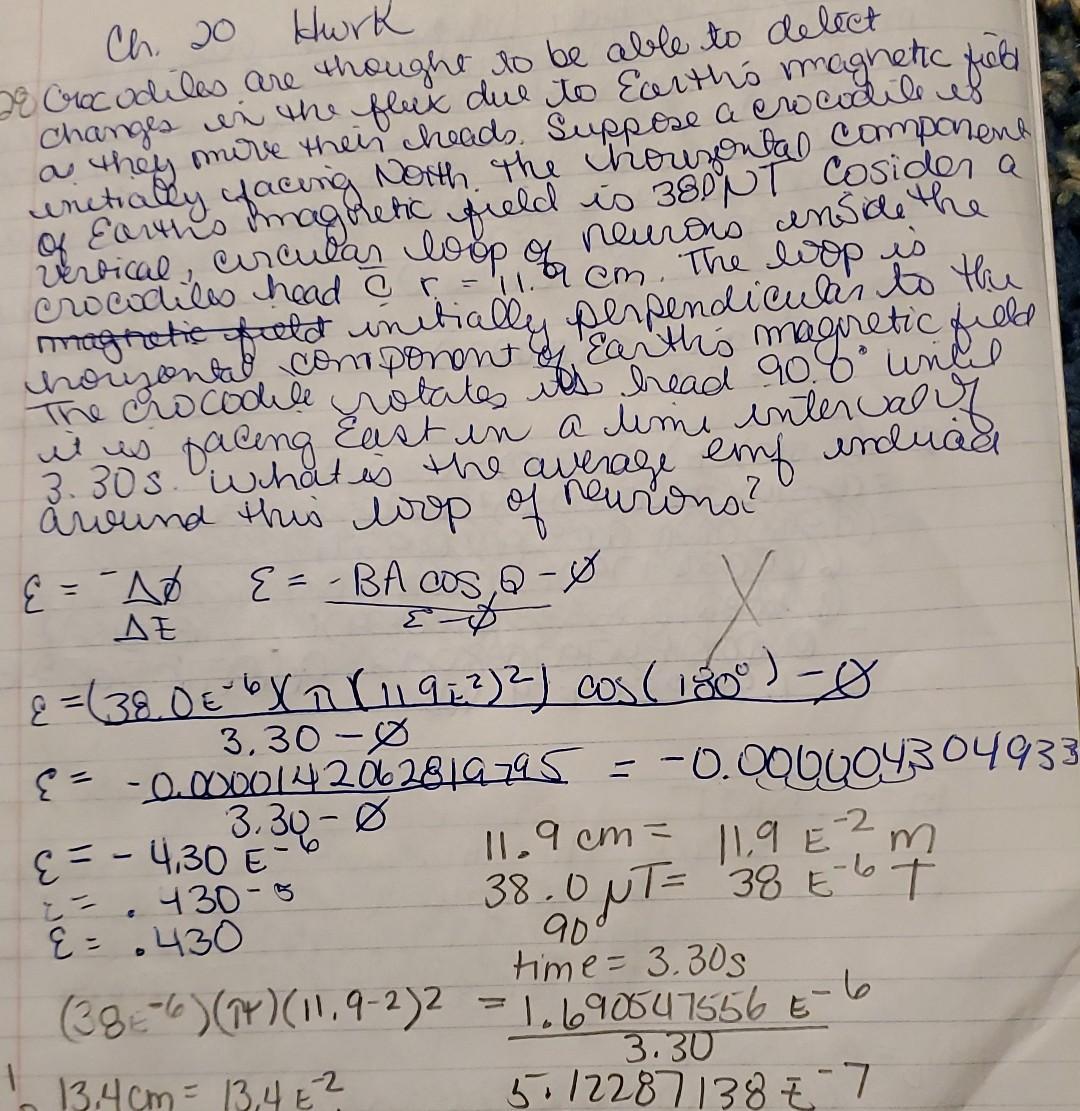 Ch. 20 Hwrk
28 Crocodiles are thought to be able to detect
changes in the flux due to Earth's magnetic field
as they move their heads. Suppose a crocodile is
initially facing North. The horizontal component
of Earth's magnetic field is 38.0 μT Cosider a
vertical, circular loop of neurons inside the
crocodiles head c̄ r = 11.9 cm. The loop is
magnetic field initially perpendicular to the
horizontal component of Earth's magnetic field
The crocodile rotates its head 90.0° until
it is facing East in a time interval of
3.30s. What is the average emf induced
around this loop of neurons?
ε = -Δϕ ε = -BA cos θ - ∅
ΔE ε - ∅
X
ε = (38.0E^-6)(π(11.9E^-2)^2) cos(180°) - ∅
3.30 - ∅
ε = -0.0000142062819795 = -0.000004304933
3.30 - ∅
ε = -4.30 E^-6
ε = .430^-5
ε = .430
11.9 cm = 11.9 E^-2 m
38.0 μT = 38 E^-6 T
90°
time = 3.30s
(38E^-6)(π)(11.9-2)2 = 1.690547556 E^-6
3.30
13.4cm = 13.4 E^-2 5.12287138 E^-7